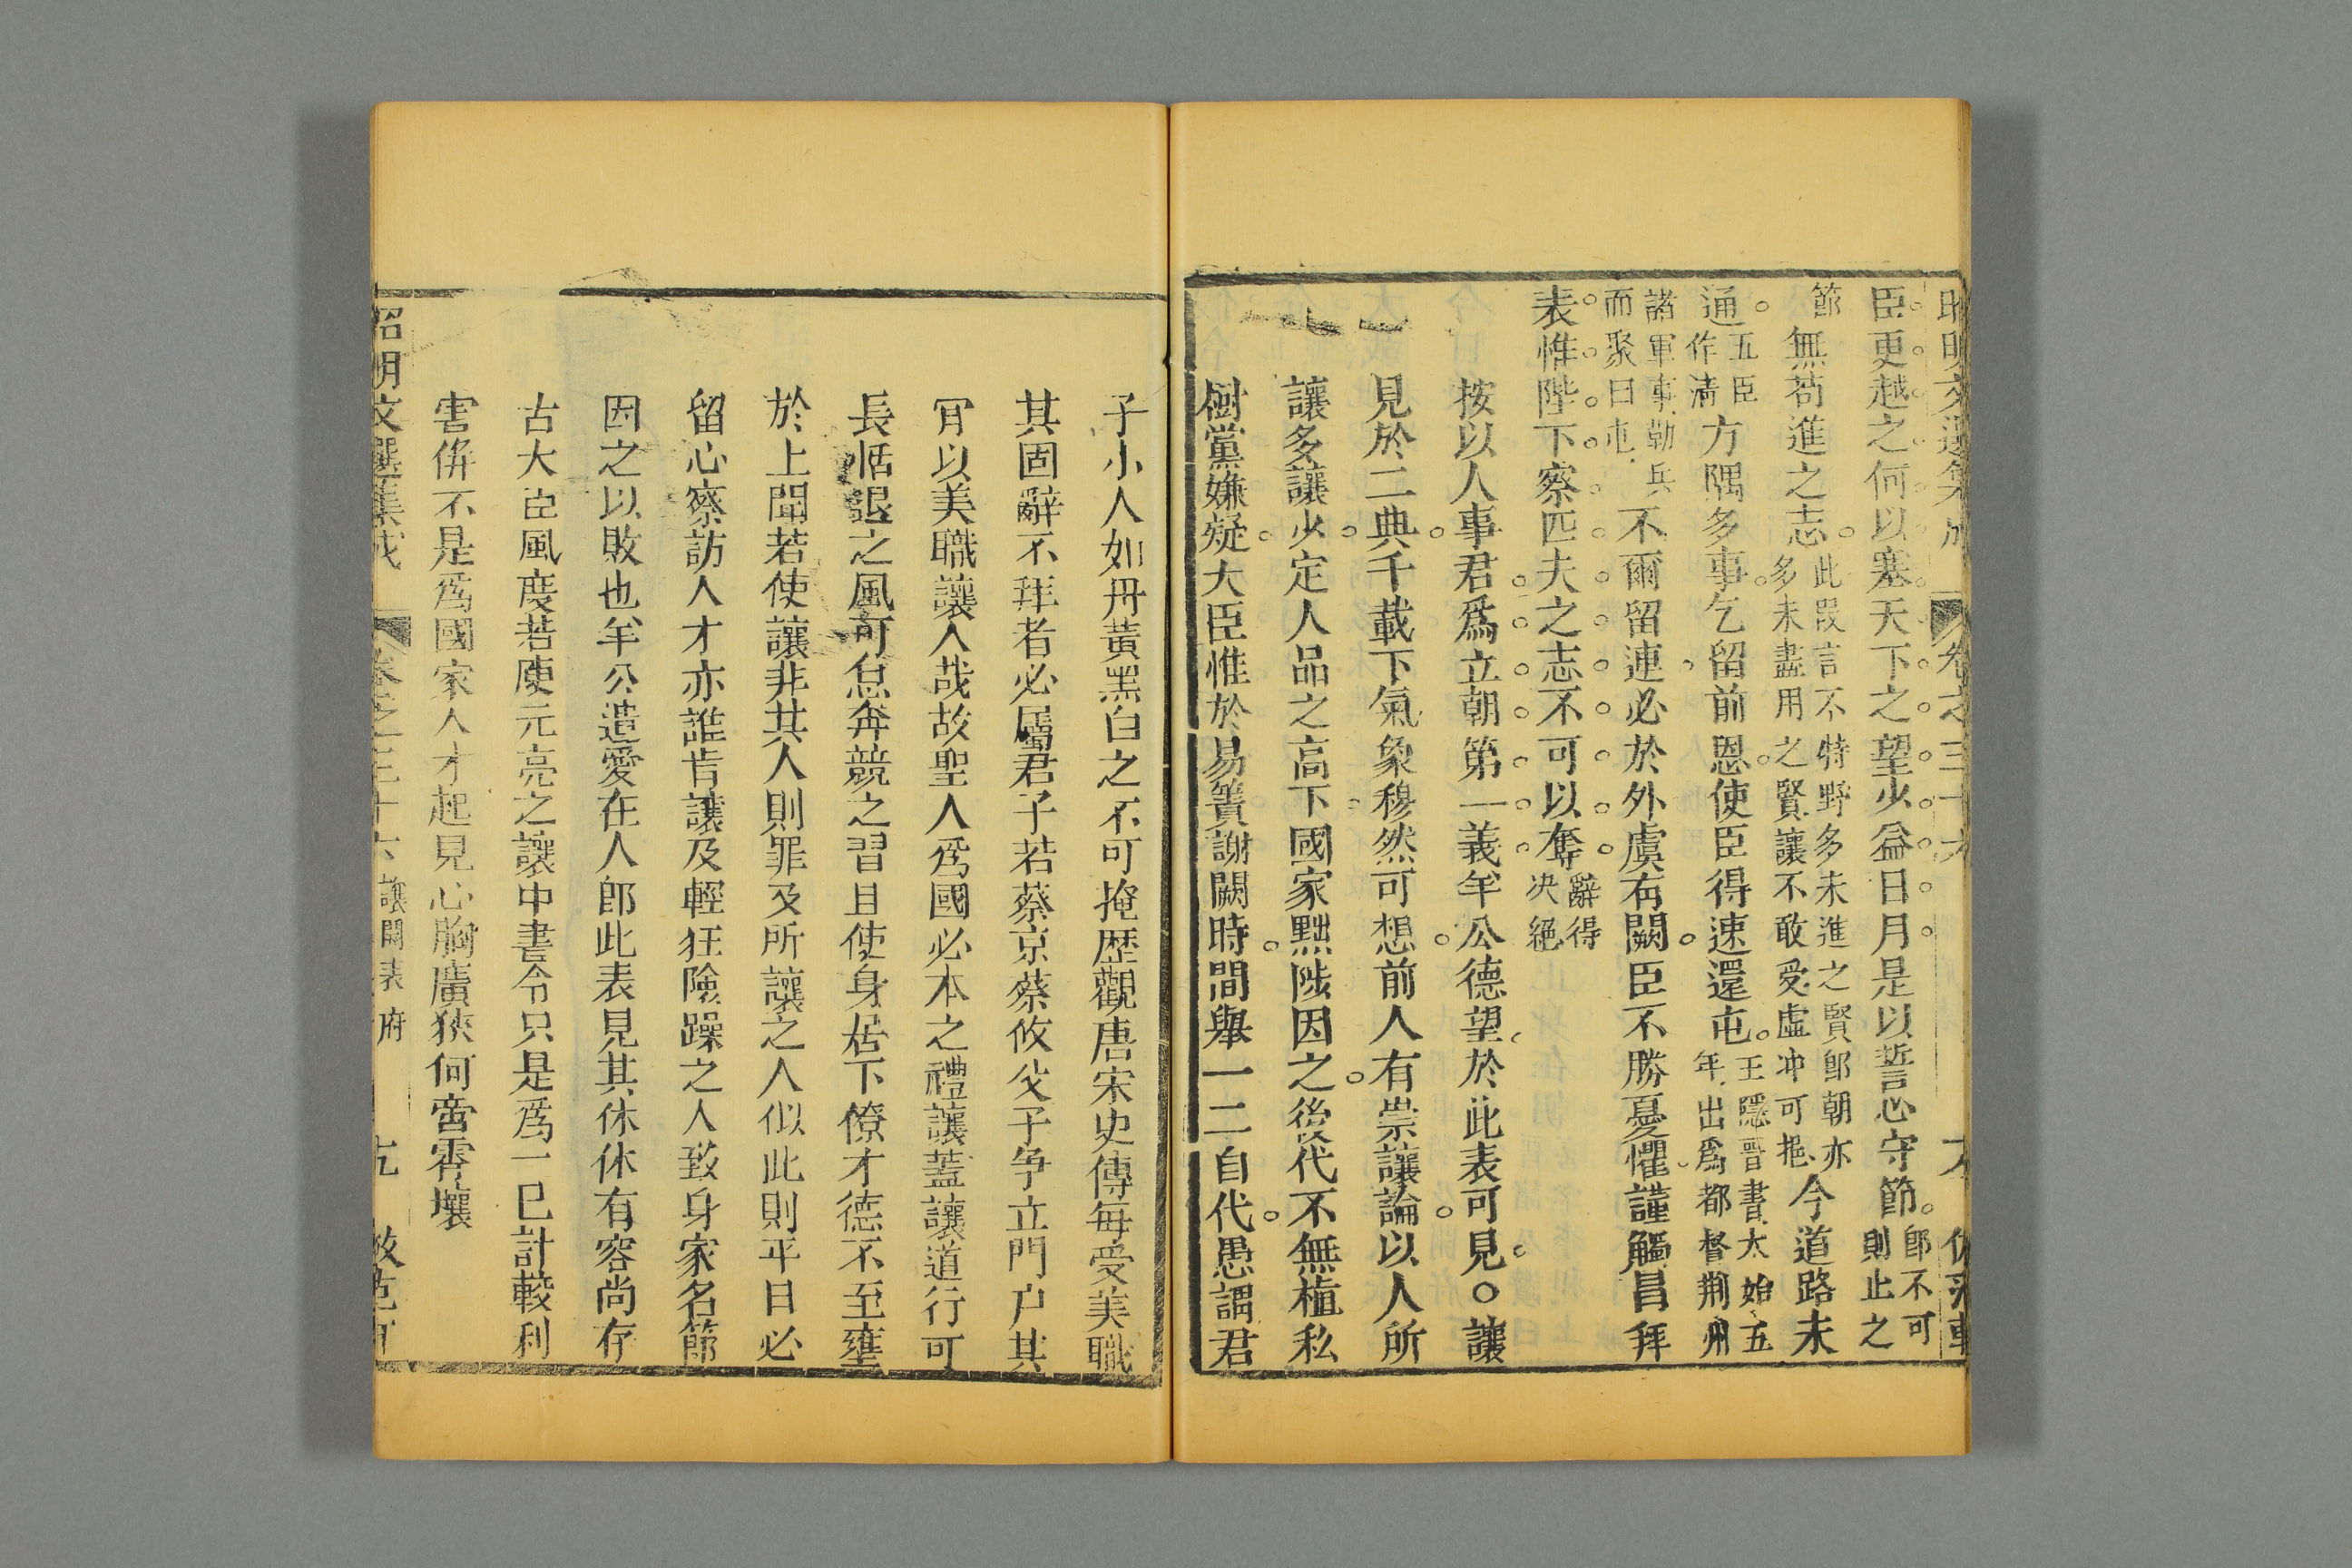 昭明文選集成　卷之三十六
臣更越之何以塞天下之望少益日月是以誓心守節。卽不可則止之
節無苟進之志。此段言不特野多未進之賢卽朝亦多未盡用之賢讓不敢受虛冲可挹今道路未
通。五臣作清方隅多事。乞留前恩。使臣得速還屯。王隱晉書太始五年出爲都督荊州
諸軍事勒兵而聚曰屯不爾留連必於外虞有闕。臣不勝憂懼謹觸昌拜
表惟陛下察匹夫之志不可以奪辭得决絕
按以人事君爲立朝第一義羊公德望於此表可見。讓
見於二典千載下氣象穆然可想前人有崇讓論以人所
讓多讓少定人品之高下國家黜陟因之後代不無植私
樹黨嫌疑大臣惟於易簀謝闕時間舉一二自代愚謂君
子小人如丹黃黑白之不可掩歷觀唐宋史傳每受美職
其固辭不拜者必屬君子若蔡京蔡攸父子争立門户其
肎以美職讓人哉故聖人爲國必本之禮讓蓋讓道行可
長恬退之風可怠奔競之習且使身居下僚才德不至壅
於上聞若使讓非其人則罪及所讓之人似此則平日必
留心察訪人才亦誰肯讓及輕狂險躁之人致身家名節
因之以敗也羊公遺愛在人卽此表見其休休有容尚存
古大臣風度若庾元亮之讓中書令只是爲一已計較利
害併不是爲國家人才起見心胸廣狹何啻霄壤
昭明文選集成　卷之三十六　讓開表府